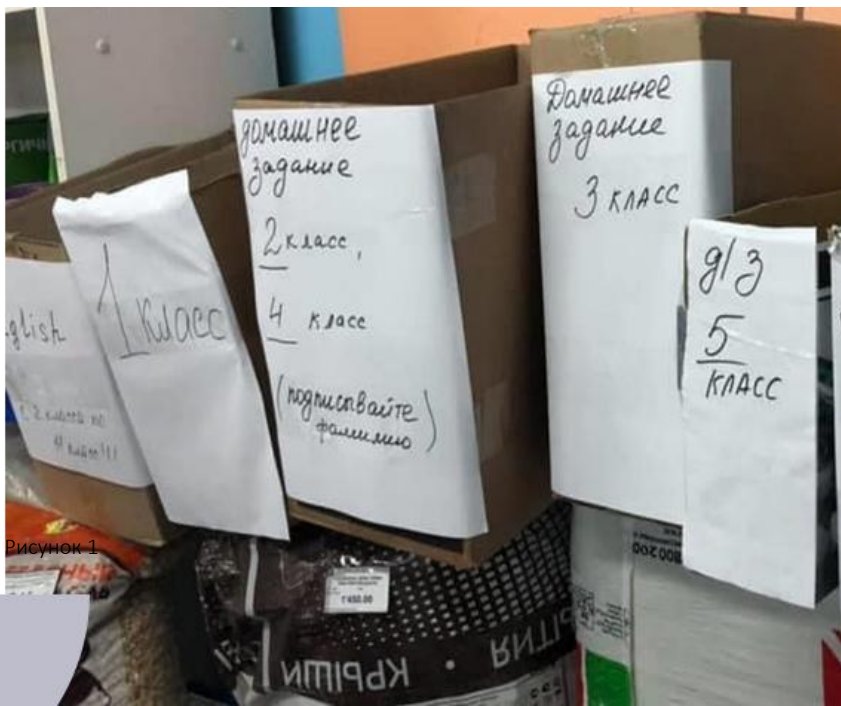 glish
с 2 класса по
4 класс!!!
1 класс
домашнее
задание
2 класс,
4 класс
(подписывайте
фамилию)
Домашнее
задание
3 класс
д/з
5
класс
Рисунок 1
1450.00
800 200
КРЫШИ •